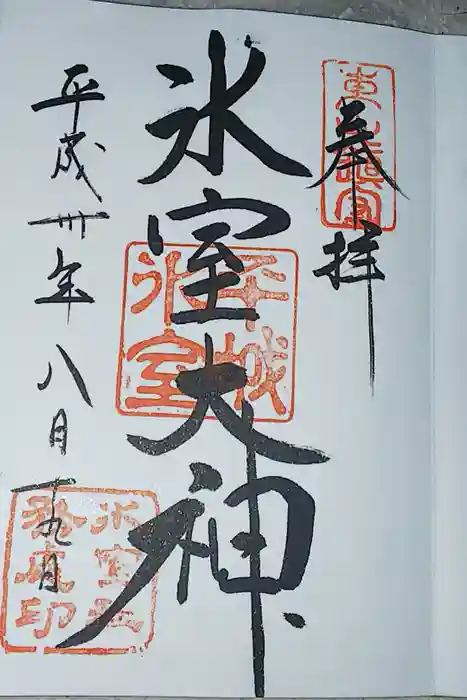 奉拝
氷室大神
平城
氷室
平成卅年八月十九日
氷室社